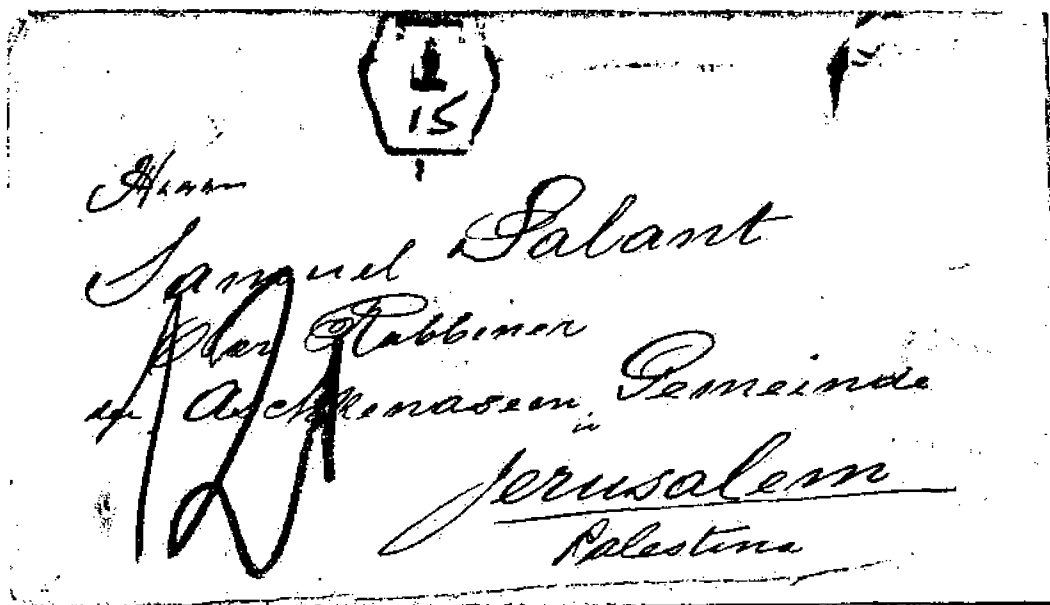 15
Herrn
Samuel Salant
Ober Rabbiner
der Aschkenasem Gemeinde
in
Jerusalem
Palestina